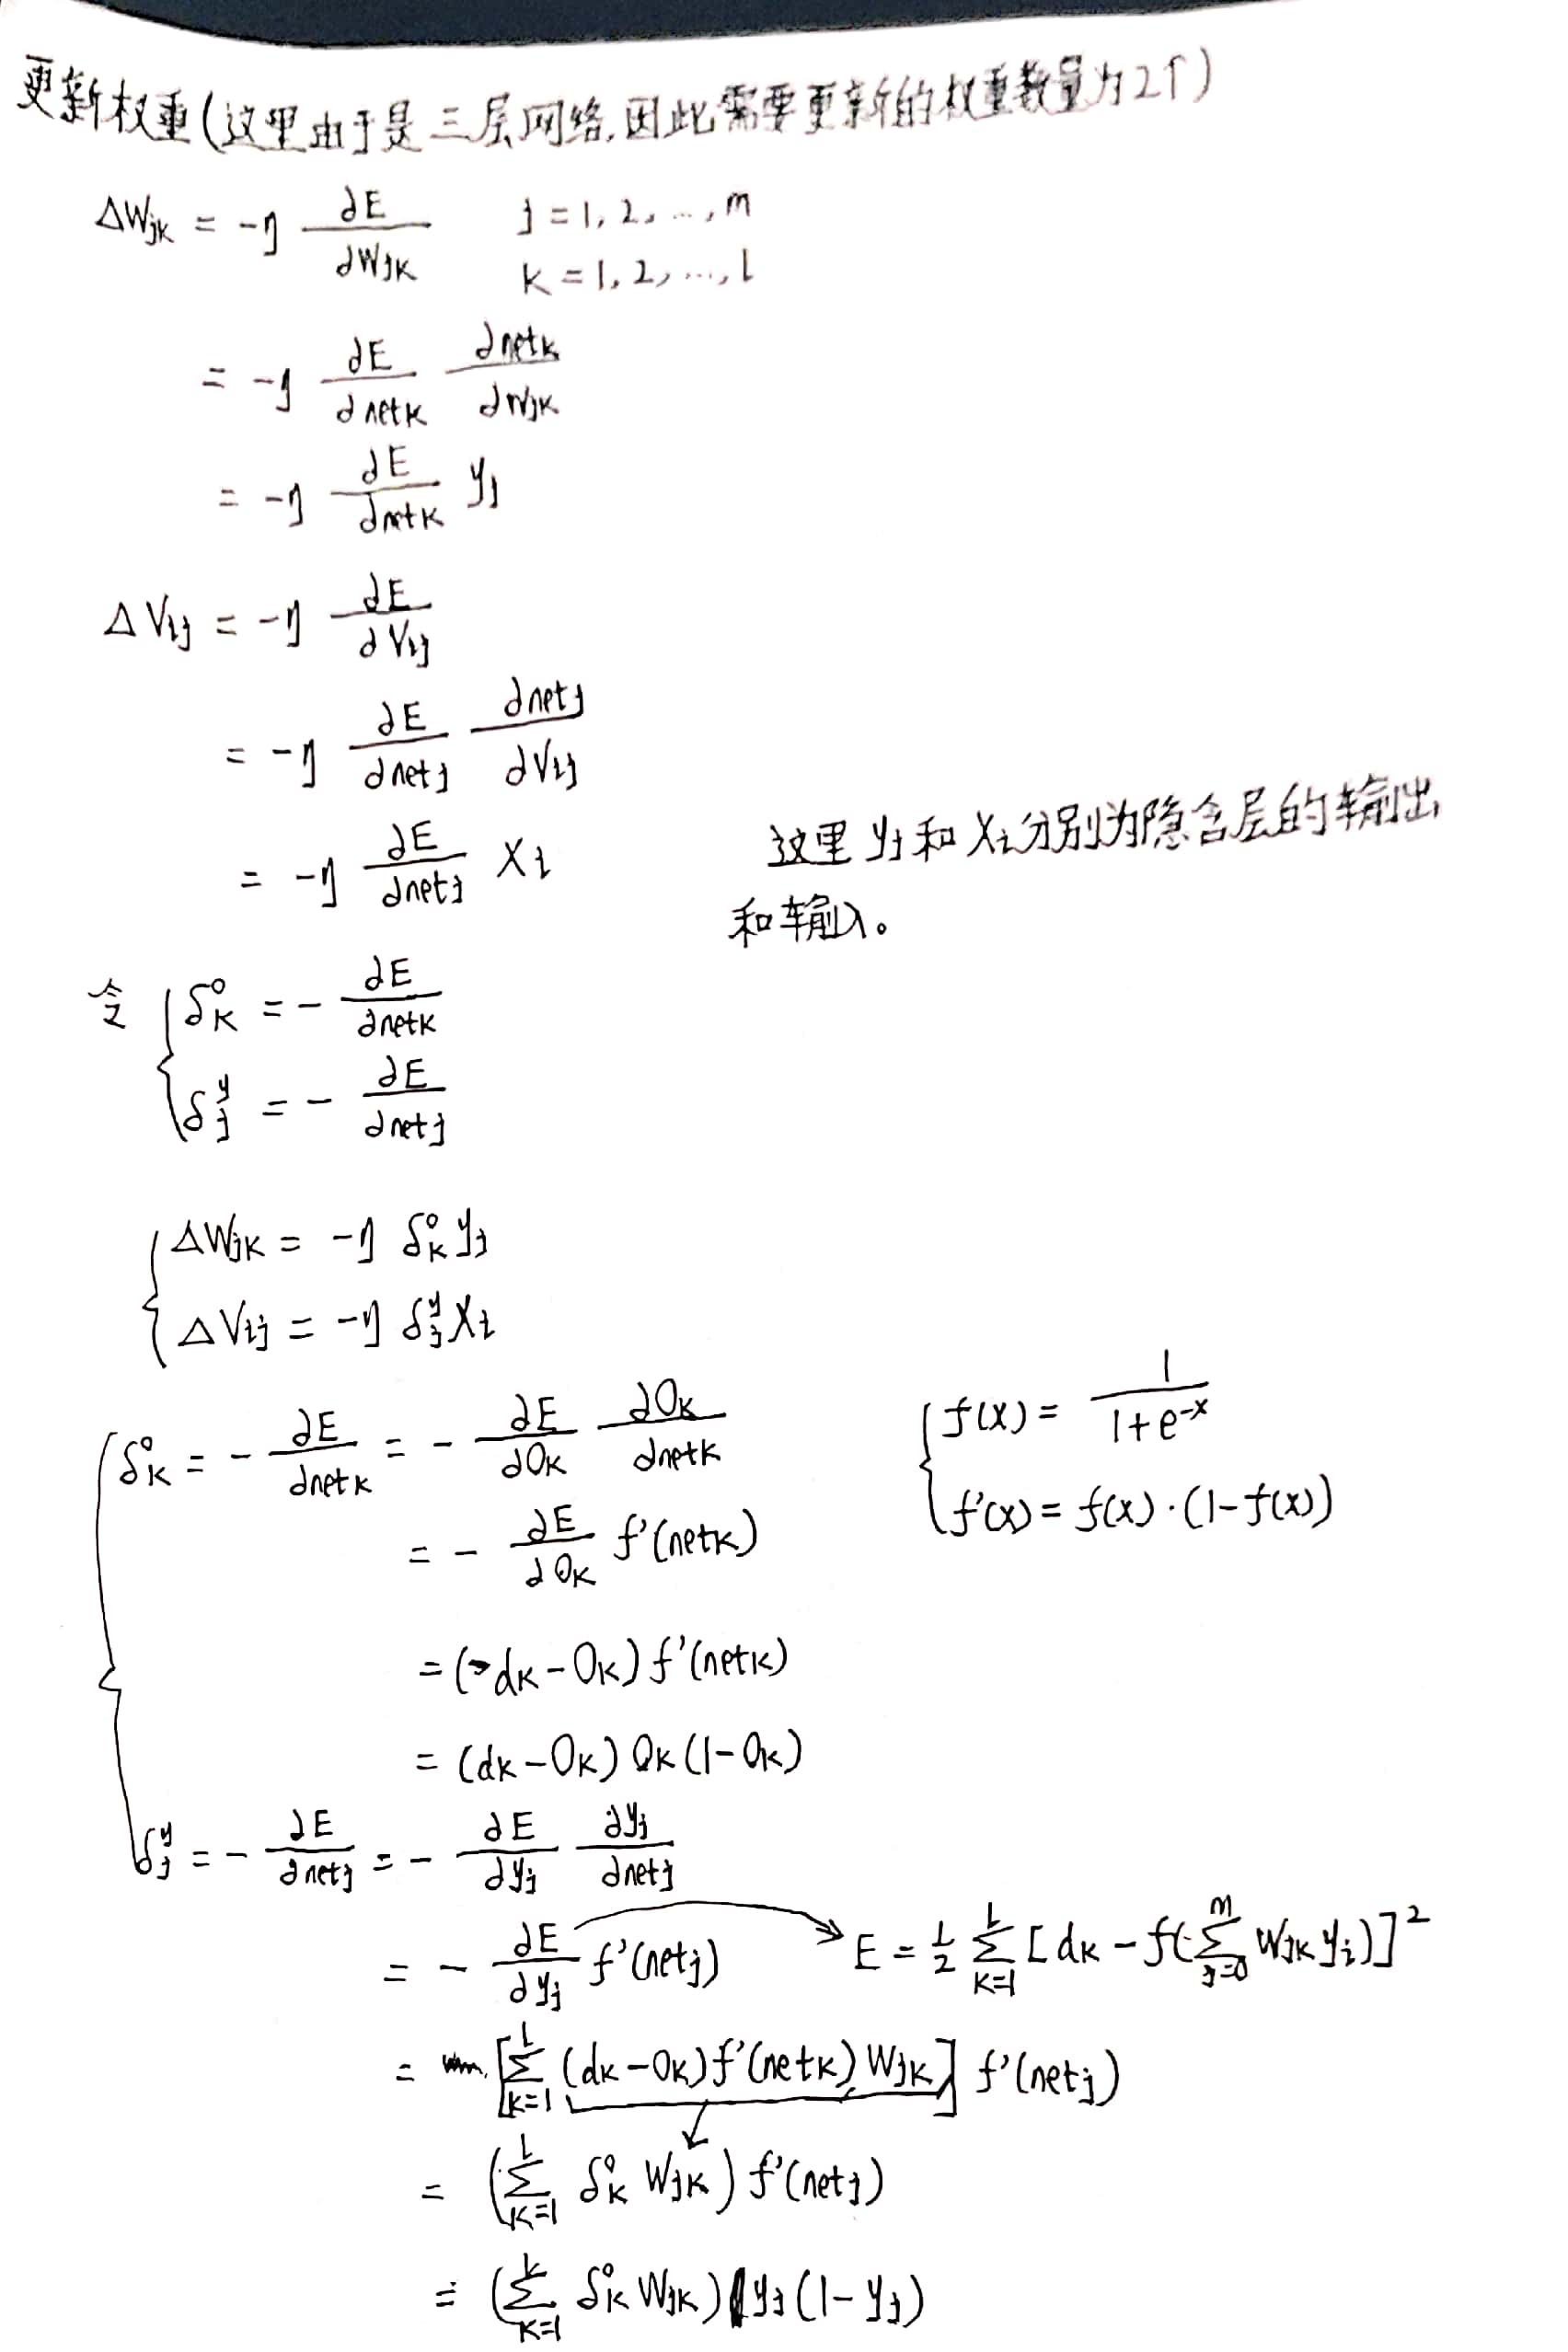 更新权重(这里由于是三层网络,因此需要更新的权重数量为2个)
ΔWjk = -η ∂E/∂Wjk    j = 1, 2, ..., m
k = 1, 2, ..., l
= -η ∂E/∂netk ∂netk/∂Wjk
= -η ∂E/∂netk yj
ΔVij = -η ∂E/∂Vij
= -η ∂E/∂netj ∂netj/∂Vij
= -η ∂E/∂netj Xi
这里 yj和 Xi分别为隐含层的输出
和输入。
令 { δk^o = - ∂E/∂netk
δj^y = - ∂E/∂netj
{ ΔWjk = -η δk^o yj
ΔVij = -η δj^y Xi
{ δk^o = - ∂E/∂netk = - ∂E/∂Ok ∂Ok/∂netk
{ f(x) = 1/(1+e^-x)
f'(x) = f(x)·(1-f(x))
= - ∂E/∂Ok f'(netk)
= (dk-Ok) f'(netk)
= (dk-Ok) Ok (1-Ok)
δj^y = - ∂E/∂netj = - ∂E/∂yj ∂yj/∂netj
= - ∂E/∂yj f'(netj) → E = 1/2 Σ_{k=1}^{L} [dk - f(Σ_{j=0}^{m} Wjk yj)]²
= [Σ_{k=1}^{L} (dk-Ok) f'(netk) Wjk] f'(netj)
= (Σ_{k=1}^{L} δk^o Wjk) f'(netj)
= (Σ_{k=1}^{k} δk^o Wjk) yj (1-yj)